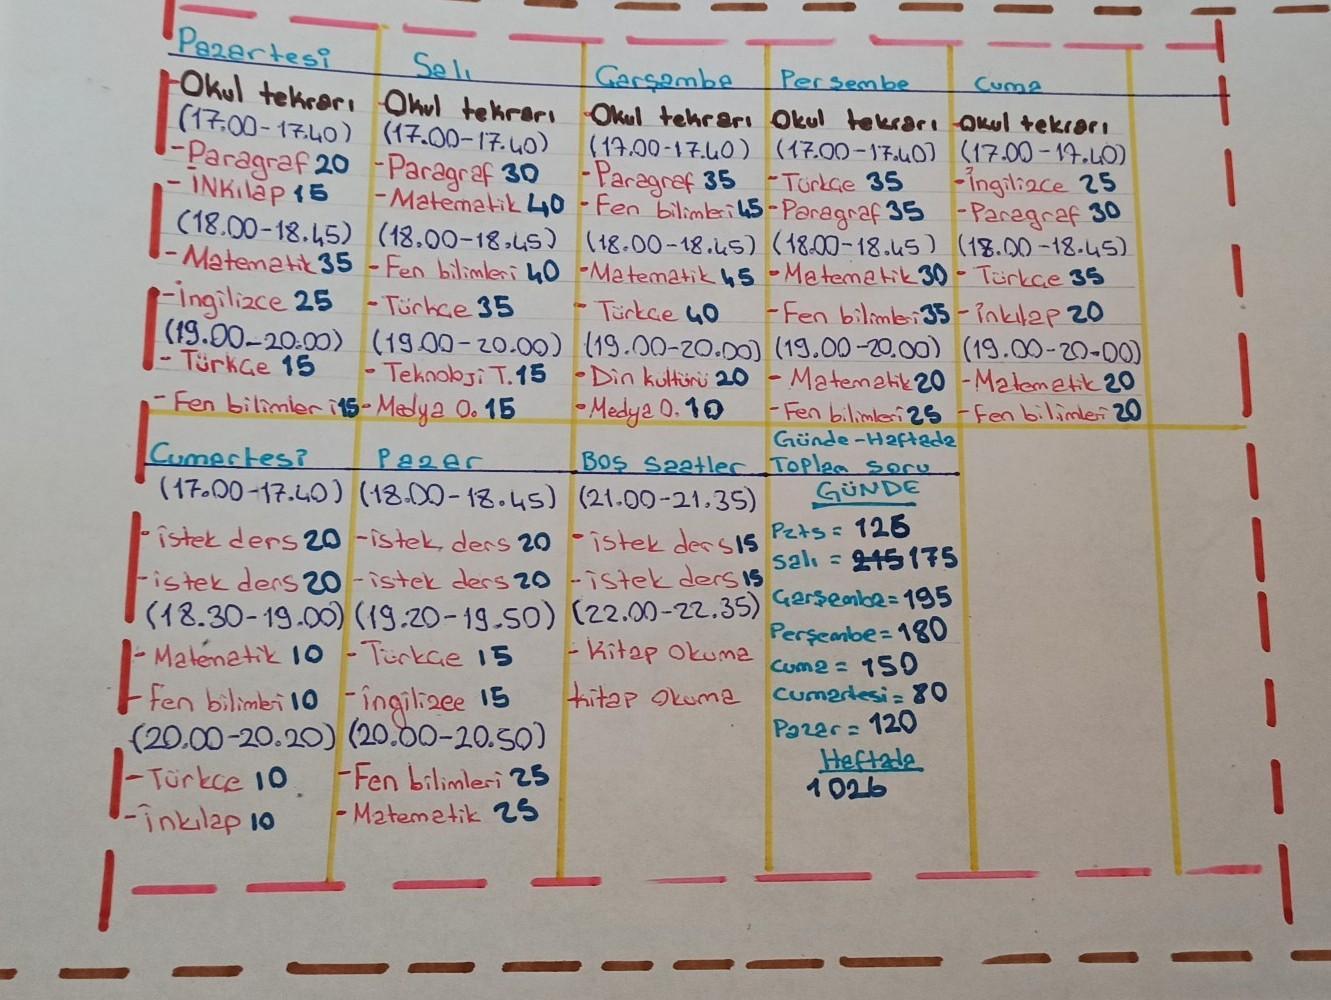 Pazartesi
-Okul tekrarı
(17.00-17.40)
-Paragraf 20
-İNKılap 15
(18.00-18.45)
-Matematik 35
-İngilizce 25
(19.00-20.00)
-Türkçe 15
-Fen bilimleri 15
Salı
-Okul tekrarı
(17.00-17.40)
-Paragraf 30
-Matematik 40
(18.00-18.45)
-Fen bilimleri 40
-Türkçe 35
(19.00-20.00)
-Teknoloji T. 15
-Medya O. 15
Çarşamba
Okul tekrarı
(17.00-17.40)
-Paragraf 35
-Fen bilimleri 45
(18.00-18.45)
-Matematik 45
-Türkçe 40
(19.00-20.00)
-Din kültürü 20
-Medya O. 10
Perşembe
Okul tekrarı
(17.00-17.40)
-Türkçe 35
-Paragraf 35
(18.00-18.45)
-Matematik 30
-Fen bilimleri 35
(19.00-20.00)
-Matematik 20
-Fen bilimleri 25
Cuma
-Okul tekrarı
(17.00-17.40)
-İngilizce 25
-Paragraf 30
(18.00-18.45)
-Türkçe 35
-inkılap 20
(19.00-20.00)
-Matematik 20
-Fen bilimleri 20
Cumartesi
(17.00-17.40)
-istek ders 20
-istek ders 20
(18.30-19.00)
-Matematik 10
-fen bilimleri 10
(20.00-20.20)
-Türkçe 10
-inkılap 10
Pazar
(18.00-18.45)
-istek ders 20
-istek ders 20
(19.20-19.50)
-Türkçe 15
-ingilizce 15
(20.00-20.50)
-Fen bilimleri 25
-Matematik 25
Boş saatler
(21.00-21.35)
-istek ders 15
-istek ders 15
(22.00-22.35)
-Kitap okuma
kitap okuma
Günde-Haftada
Toplam soru
GÜNDE
Pzts = 125
Salı = 215 175
Çarşamba = 195
Perşembe = 180
Cuma = 150
Cumartesi = 80
Pazar = 120
Haftada
1026